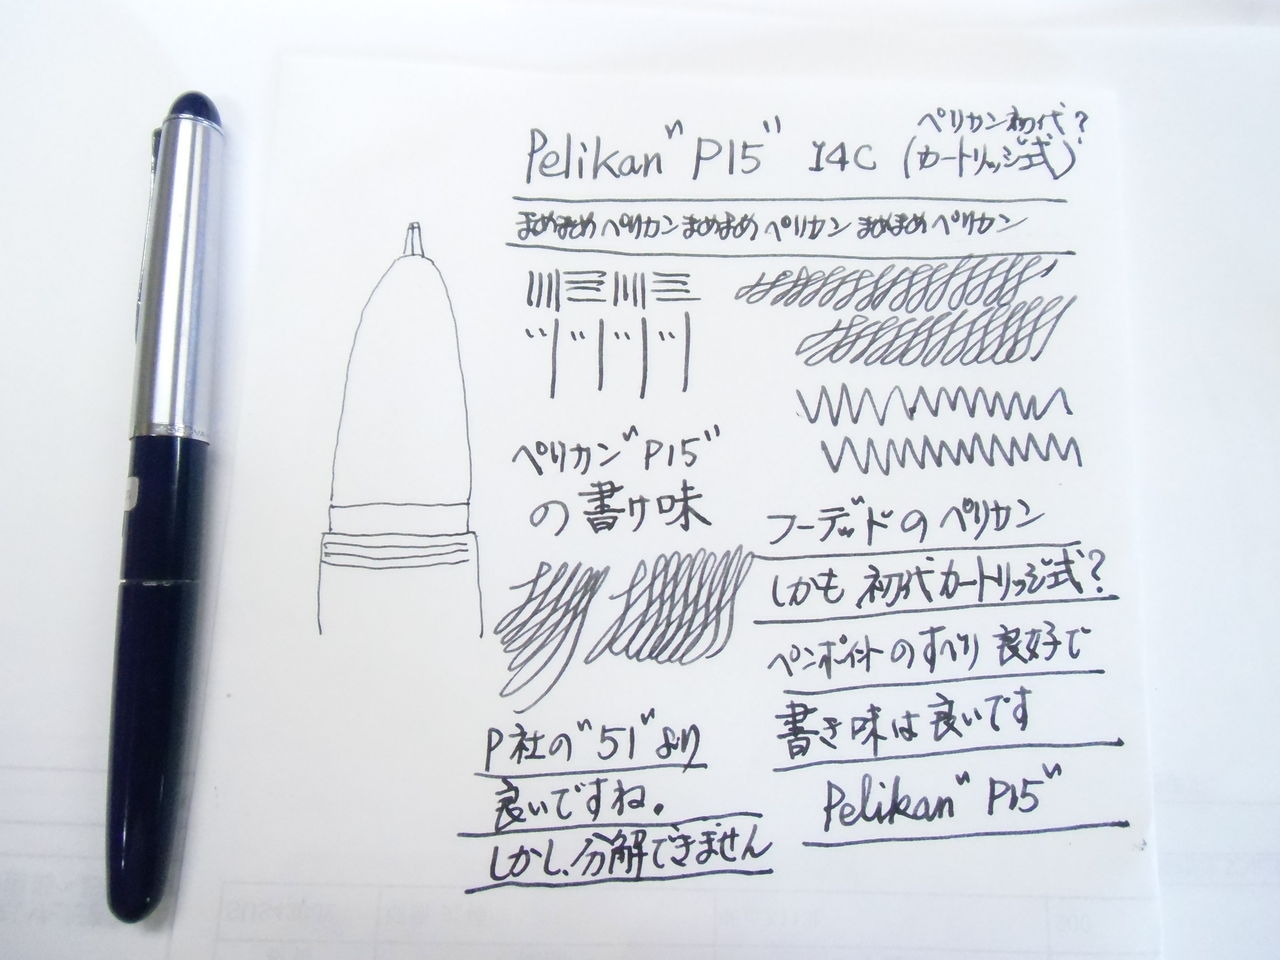 ペリカン初代?
Pelikan "P15" 14C (カートリッジ式)
まめまめペリカンまめまめペリカンまめまめペリカン
ペリカン"P15"
の書き味
フーデッドのペリカン
しかも初代カートリッジ式?
ペンポイントのすべり良好で
書き味は良いです
Pelikan "P15"
P社の"51"より
良いですね。
しかし、分解できません